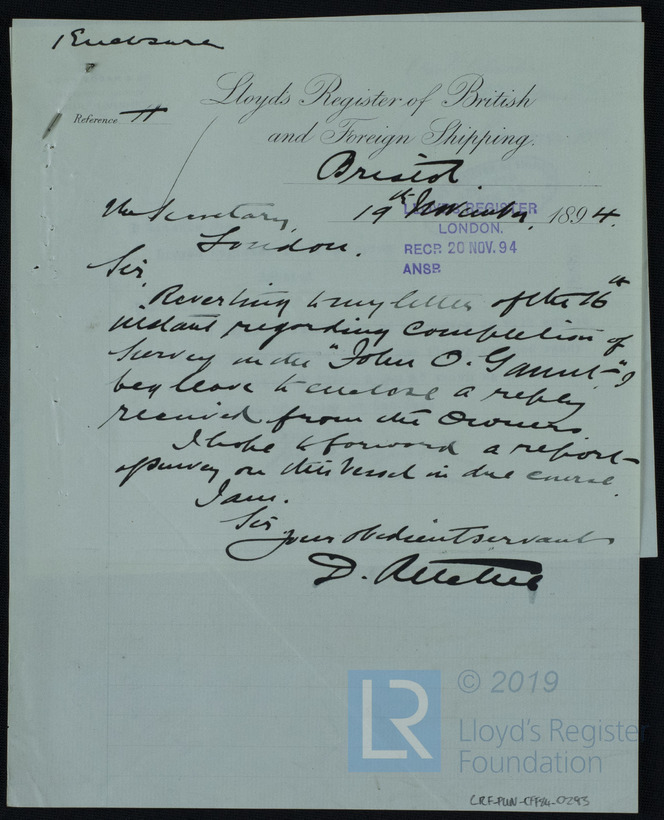 1 Enclosure
Lloyd's Register of British
Reference H
and Foreign Shipping.
Bristol
19th November, 1894.
The Secretary,
London.
LLOYD'S REGISTER
LONDON.
RECD 20 NOV. 94
ANSD
Sir,
Reverting to my letter of the 16th
instant regarding completion of
Survey on the "John O. Gaunt" I
beg leave to enclose a reply
received from the Owners.
I hope to forward a report
of survey on this vessel in due course.
I am.
Sir
your obedient servant
D.
LR
© 2019
Lloyd's Register
Foundation
CRF-PUN-CFP94-0293